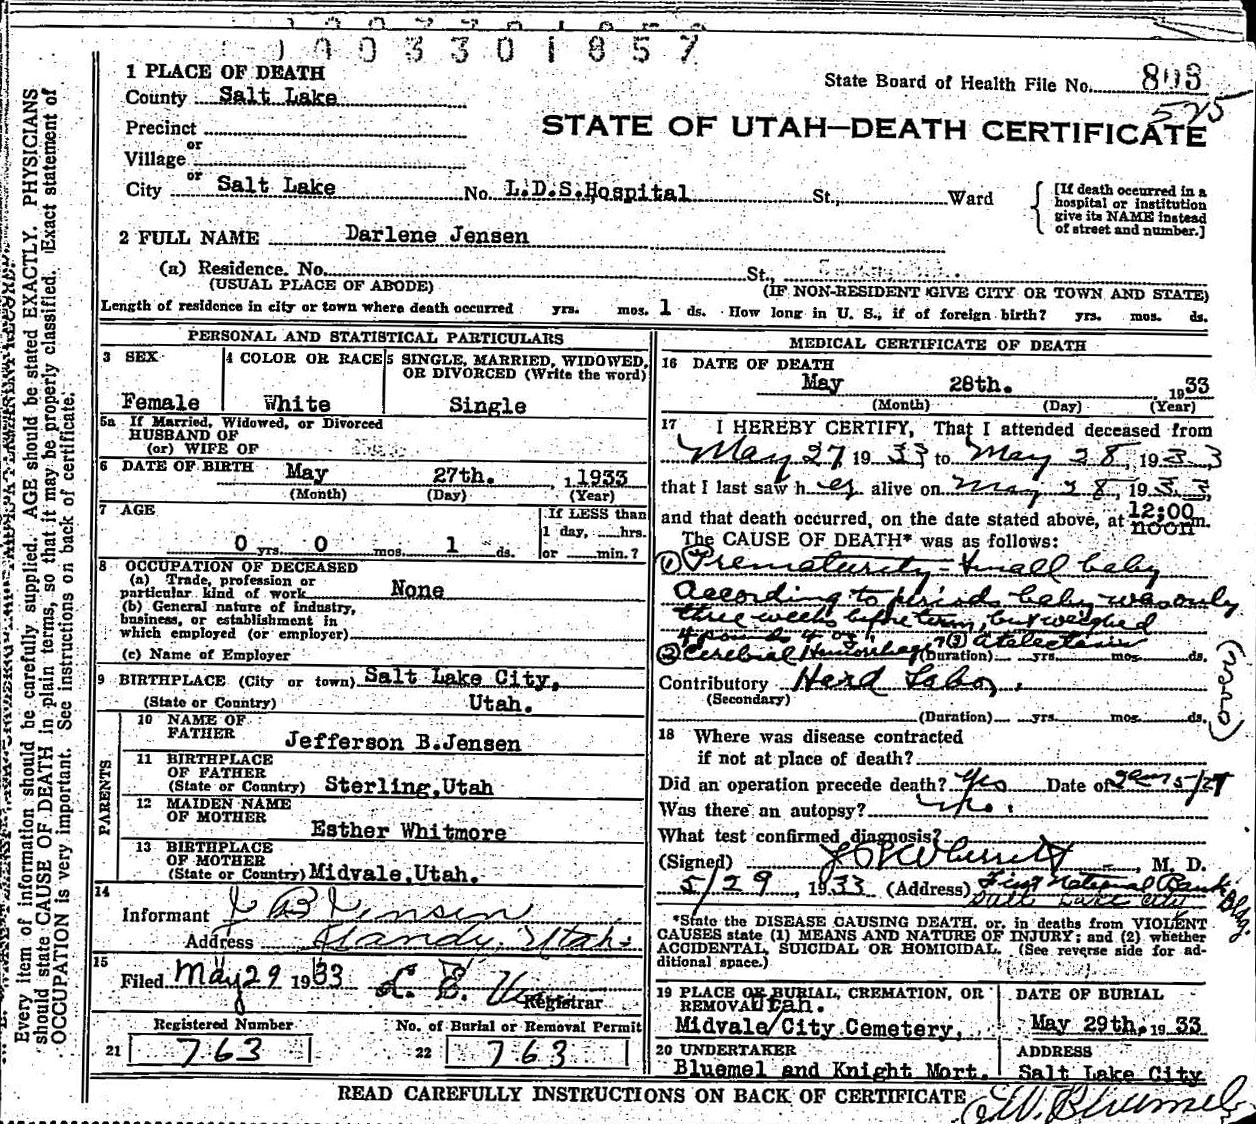 1003301857
1 PLACE OF DEATH
State Board of Health File No. 803
County Salt Lake
525
Precinct
STATE OF UTAH—DEATH CERTIFICATE
or
Village
or
City Salt Lake No. L.D.S.Hospital St., Ward
[If death occurred in a hospital or institution give its NAME instead of street and number.]
2 FULL NAME Darlene Jensen
(a) Residence. No. St.,
(USUAL PLACE OF ABODE) (IF NON-RESIDENT GIVE CITY OR TOWN AND STATE)
Length of residence in city or town where death occurred yrs. mos. 1 ds. How long in U. S., if of foreign birth? yrs. mos. ds.
PERSONAL AND STATISTICAL PARTICULARS
3 SEX 4 COLOR OR RACE 5 SINGLE, MARRIED, WIDOWED,
OR DIVORCED (Write the word)
Female White Single
5a If Married, Widowed, or Divorced
HUSBAND OF
(or) WIFE OF
6 DATE OF BIRTH May 27th. 1933
(Month) (Day) (Year)
7 AGE If LESS than
1 day, hrs.
0 yrs. 0 mos. 1 ds. or min.?
8 OCCUPATION OF DECEASED
(a) Trade, profession or
particular kind of work None
(b) General nature of industry,
business, or establishment in
which employed (or employer)
(c) Name of Employer
9 BIRTHPLACE (City or town) Salt Lake City,
(State or Country) Utah.
PARENTS
10 NAME OF
FATHER Jefferson B.Jensen
11 BIRTHPLACE
OF FATHER
(State or Country) Sterling,Utah
12 MAIDEN NAME
OF MOTHER
Esther Whitmore
13 BIRTHPLACE
OF MOTHER
(State or Country) Midvale,Utah.
14
Informant J B Jensen
Address Sandy, Utah.
15
Filed May 29 1933
Registrar
Registered Number No. of Burial or Removal Permit
21 763 22 763
MEDICAL CERTIFICATE OF DEATH
16 DATE OF DEATH
May 28th. 1933
(Month) (Day) (Year)
17 I HEREBY CERTIFY, That I attended deceased from
May 27, 1933 to May 28, 1933
that I last saw her alive on May 28, 1933,
and that death occurred, on the date stated above, at 12:00 noon m.
The CAUSE OF DEATH* was as follows:
(1) Prematurity - small baby
According to periods baby was only
three weeks before term, but weighed
4 pounds 4 oz.
(2) Cerebral Hemorrhage (3) atelectasis
(Duration) yrs. mos. ds.
Contributory Hard Labor.
(Secondary)
(Duration) yrs. mos. ds.
18 Where was disease contracted
if not at place of death?
Did an operation precede death? Yes Date of 5/27
Was there an autopsy? no.
What test confirmed diagnosis?
(Signed) M. D.
5/29, 1933 (Address) First National Bank Bldg.
Salt Lake City
*State the DISEASE CAUSING DEATH, or, in deaths from VIOLENT
CAUSES state (1) MEANS AND NATURE OF INJURY; and (2) whether
ACCIDENTAL, SUICIDAL OR HOMICIDAL. (See reverse side for ad-
ditional space.)
19 PLACE OF BURIAL, CREMATION, OR
REMOVAL Utah.
Midvale/City Cemetery,
DATE OF BURIAL
May 29th. 1933
20 UNDERTAKER
Bluemel and Knight Mort.
ADDRESS
Salt Lake City
READ CAREFULLY INSTRUCTIONS ON BACK OF CERTIFICATE
Every item of information should be carefully supplied. AGE should be stated EXACTLY. PHYSICIANS
should state CAUSE OF DEATH in plain terms, so that it may be properly classified. Exact statement of
OCCUPATION is very important. See instructions on back of certificate.